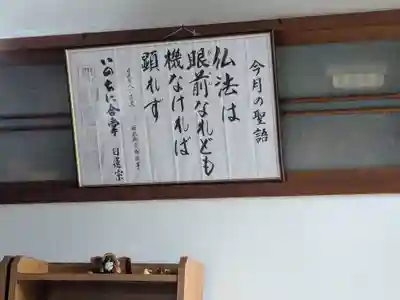 今月の聖語
仏法は
眼前なれども
機なければ
顕れず
いのちに合掌 日蓮宗